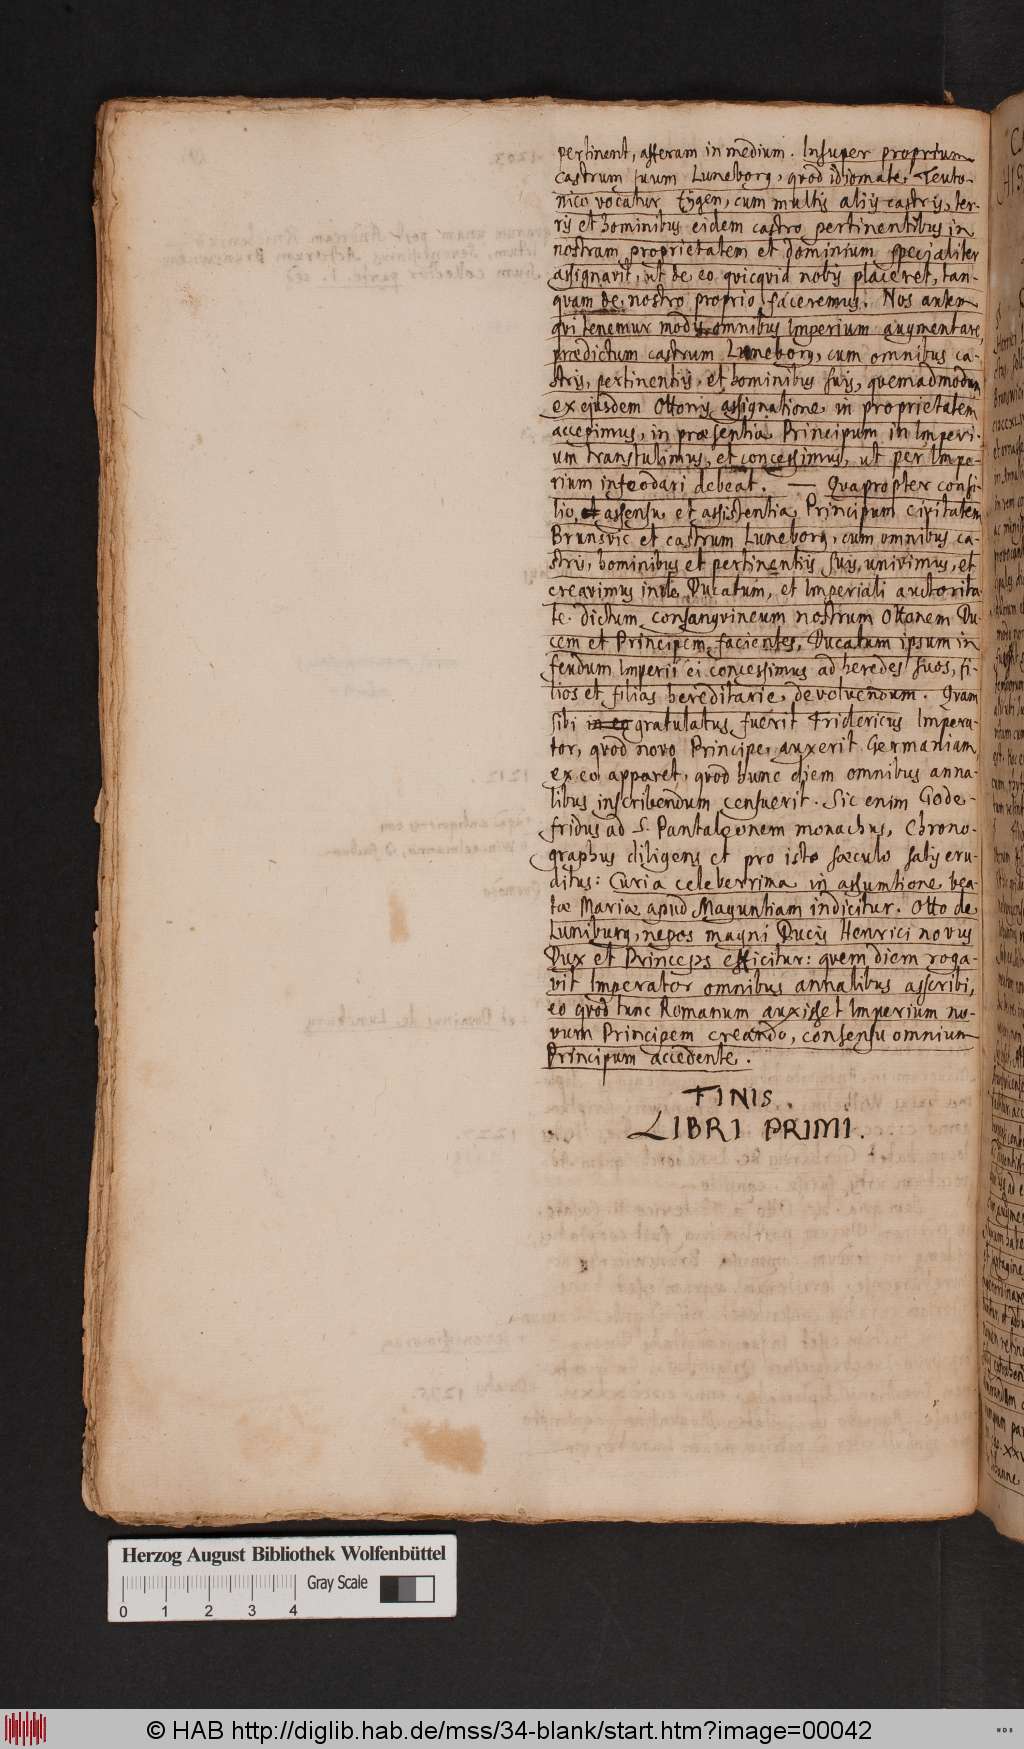 pertinent, afferam in medium. Insuper proprium
castrum suum Luneborg, quod idiomate Teuto-
nico vocatur Eygen, cum multis aliis castris, ter-
ris et hominibus eidem castro pertinentibus in
nostram proprietatem et dominium specialiter
assignavit, ut de eo quicquid nobis placeret, tan-
quam de nostro proprio faceremus. Nos autem
qui tenemur modis omnibus Imperium augmentare,
prædictum castrum Luneborg, cum omnibus ca-
stris, pertinentiis, et hominibus suis, quemadmodum
ex ejusdem Ottonis assignatione in proprietatem
accepimus, in præsentia Principum in Imperi-
um transtulimus, et concessimus, ut per Impe-
rium infeodari debeat. — Quapropter consi-
lio, assensu et assistentia Principum civitatem
Brunsvic et castrum Luneborg, cum omnibus ca-
stris, hominibus et pertinentiis suis, univimus, et
creavimus inde Ducatum, et Imperiali auctorita-
te dictum consanguineum nostrum Ottonem Du-
cem et Principem facientes, Ducatum ipsum in
feudum Imperii ei concessimus ad heredes suos, fi-
lios et filias hereditarie devoluendum. Quam
sibi in eo gratulatus fuerit Fridericus Impera-
tor, quod novo Principe auxerit Germaniam,
ex eo apparet, quod hunc diem omnibus anna-
libus inscribendum censuerit. Sic enim Gode-
fridus ad S. Pantaleonem monachus, Chrono-
graphus diligens et pro isto sæculo satis eru-
ditus: Curia celeberrima in assumtione bea-
tæ Mariæ apud Maguntiam indicitur. Otto de
Luniburg, nepos magni Ducis Henrici novus
Dux et Princeps efficitur: quem diem roga-
vit Imperator omnibus annalibus asscribi,
eo quod tunc Romanum auxisset Imperium no-
vum Principem creando, consensu omnium
Principum accedente.
FINIS.
LIBRI PRIMI.
Herzog August Bibliothek Wolfenbüttel
Gray Scale
0 1 2 3 4
© HAB http://diglib.hab.de/mss/34-blank/start.htm?image=00042